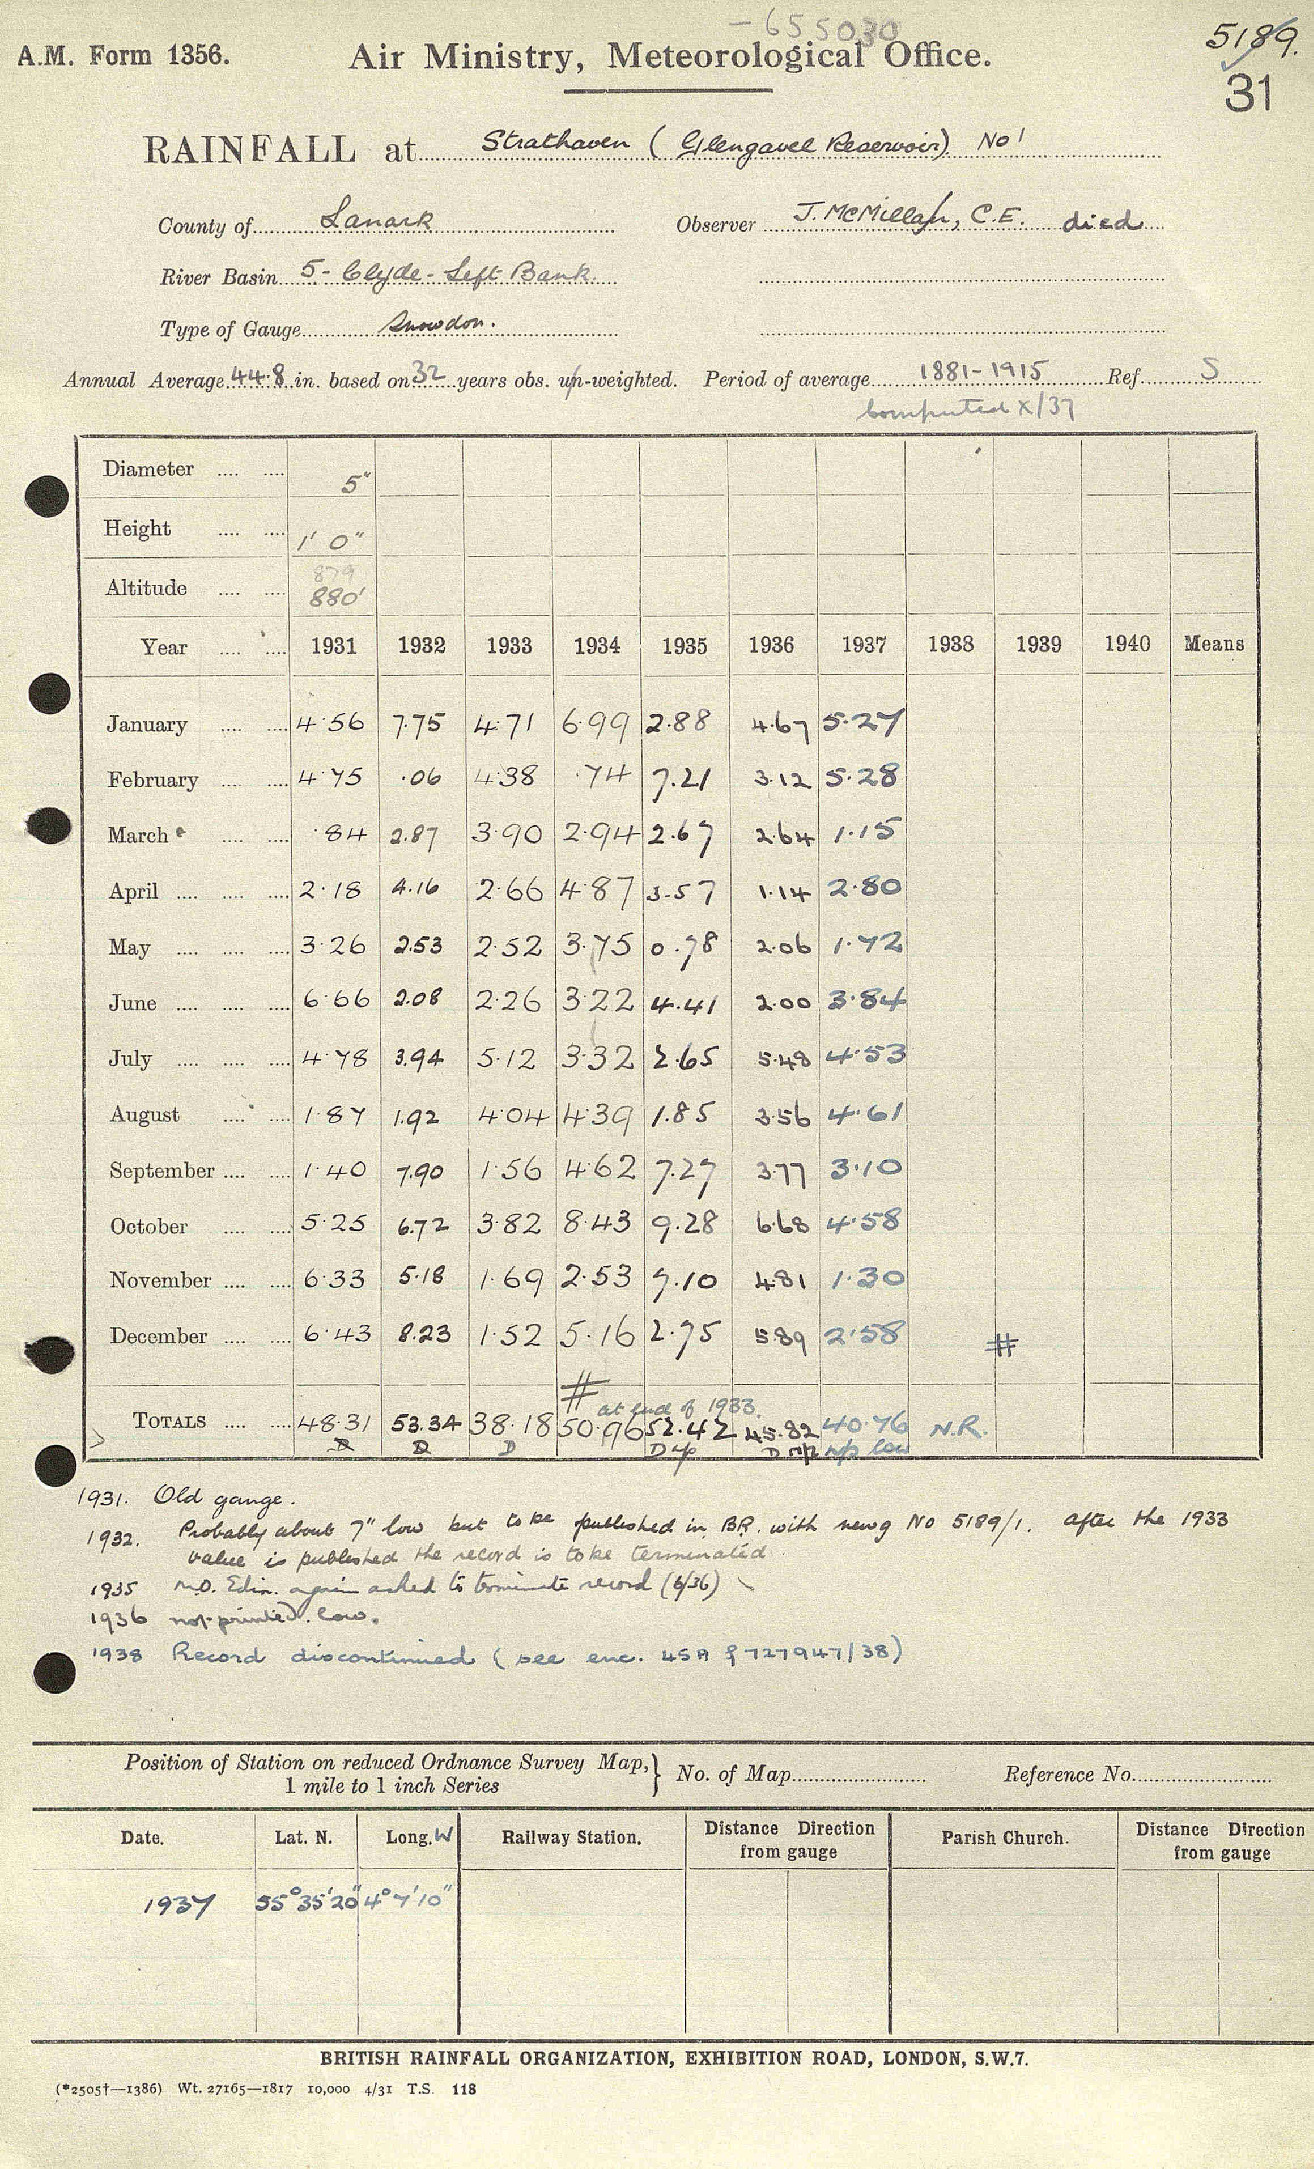 -655030
A.M. Form 1356. Air Ministry, Meteorological Office. 5189.
31
RAINFALL at Strathaven (Glengavel Reservoir) No 1
County of Lanark Observer J. McMillan, C.E. died
River Basin 5- Clyde - Left Bank.
Type of Gauge Snowdon.
Annual Average 44.8 in. based on 32 years obs. un-weighted. Period of average 1881-1915 Ref. S
Computed X/37
Diameter 5"
Height 1' 0"
Altitude 879
880'
Year 1931 1932 1933 1934 1935 1936 1937 1938 1939 1940 Means
January 4.56 7.75 4.71 6.99 2.88 4.67 5.27
February 4.75 .06 4.38 .74 7.21 3.12 5.28
March .84 2.87 3.90 2.94 2.67 2.64 1.15
April 2.18 4.16 2.66 4.87 3.57 1.14 2.80
May 3.26 2.53 2.52 3.75 0.78 2.06 1.72
June 6.66 2.08 2.26 3.22 4.41 2.00 3.84
July 4.78 3.94 5.12 3.32 2.65 5.48 4.53
August 1.87 1.92 4.04 4.39 1.85 3.56 4.61
September 1.40 7.90 1.56 4.62 7.27 3.77 3.10
October 5.25 6.72 3.82 8.43 9.28 6.68 4.58
November 6.33 5.18 1.69 2.53 7.10 4.81 1.30
December 6.43 8.23 1.52 5.16 2.75 5.89 2.58 #
# at end of 1933.
TOTALS 48.31 53.34 38.18 50.96 52.42 45.82 40.76 N.R.
D D D D n/p D n/p n/p low
1931. Old gauge.
1932. Probably about 7" low but to be published in B.R. with new g No 5189/1. after the 1933
value is published the record is to be terminated
1935 M.O. Edin. again asked to terminate record (6/36)
1936 not printed. low.
1938 Record discontinued (see enc. 45A f 727947/38)
Position of Station on reduced Ordnance Survey Map, 1 mile to 1 inch Series } No. of Map Reference No.
Date. Lat. N. Long. W Railway Station. Distance Direction from gauge Parish Church. Distance Direction from gauge
1937 55°35'20" 4°7'10"
BRITISH RAINFALL ORGANIZATION, EXHIBITION ROAD, LONDON, S.W.7.
(*2505†—1386) Wt. 27165—1817 10,000 4/31 T.S. 118